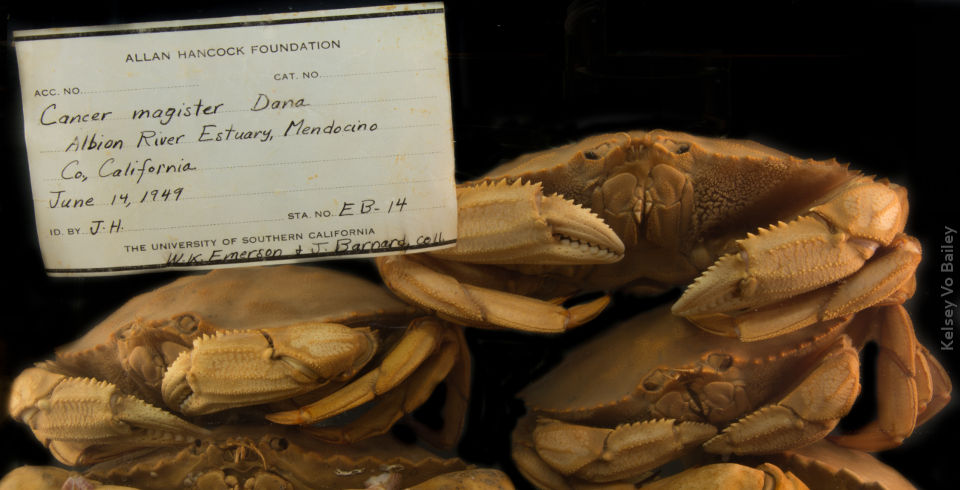 ALLAN HANCOCK FOUNDATION
ACC. NO. CAT. NO.
Cancer magister Dana
Albion River Estuary, Mendocino
Co., California
June 14, 1949
ID. BY J.H. STA. NO. EB-14
THE UNIVERSITY OF SOUTHERN CALIFORNIA
W.K. Emerson & J. Barnard, coll.
Kelsey Vo Bailey